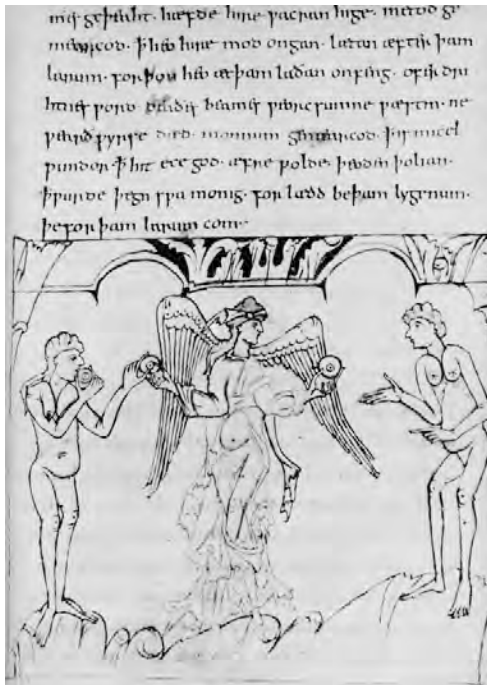 mes geþeaht· hæfde hire ƿacran hige· metod ge
mearcod· ꝥ heo hire mod ongan· lætan æfter þam
larum· forþon heo æt þam laðan onfeng· ofer dri
htnes ƿord· deaðes beames ƿeorcsumne ƿæstm· ne
ƿearð ƿyrse dæd· monnum gemearcod· ꝥ is micel
ƿundor· ꝥ hit ece god· æfre ƿolde· þeoden þolian·
ꝥ ƿurde þegn sƿa monig· forlædd be þam lygenum·
þe for þam larum com·